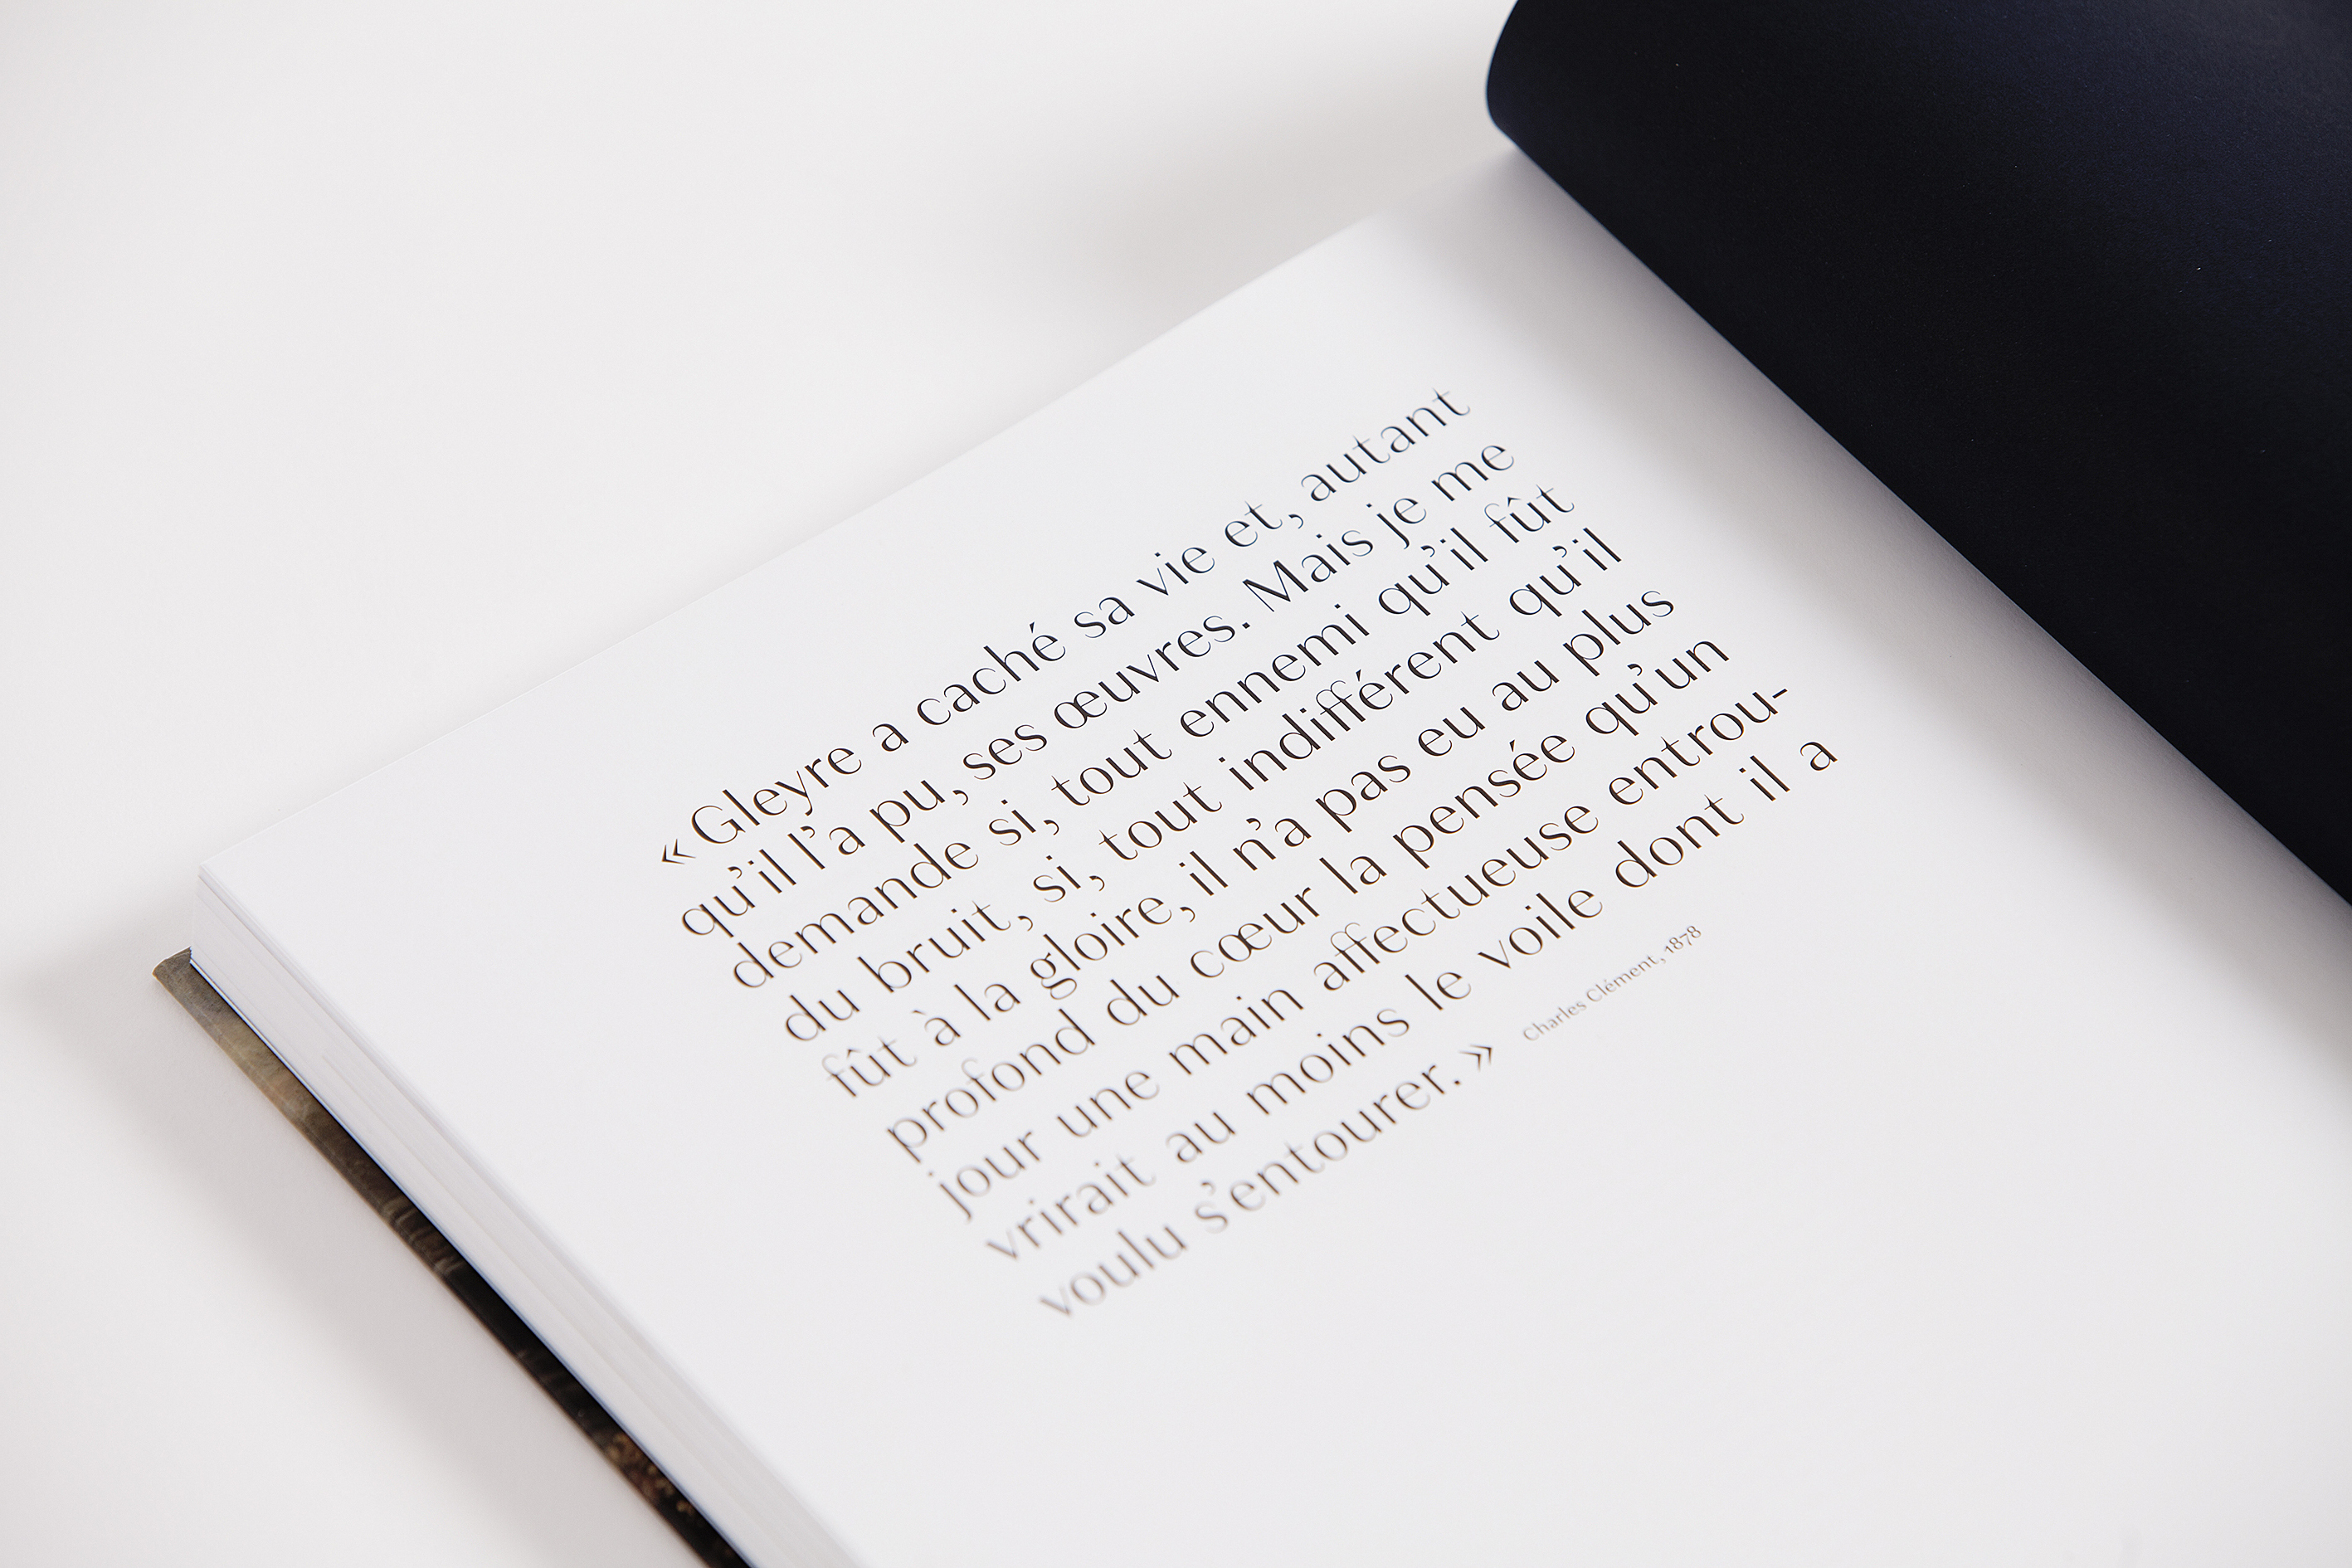 «Gleyre a caché sa vie et, autant
qu’il l’a pu, ses œuvres. Mais je me
demande si, tout ennemi qu’il fût
du bruit, si, tout indifférent qu’il
fût à la gloire, il n’a pas eu au plus
profond du cœur la pensée qu’un
jour une main affectueuse entrou-
vrirait au moins le voile dont il a
voulu s’entourer.» Charles Clément, 1878